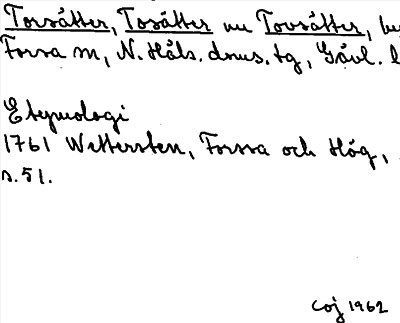 Torsätter, Tosätter nu Tovsätter, by
Forsa sn, N. Häls. doms. tg, Gävl. l
Etymologi
1761 Wettersten, Forssa och Hög,
s. 51.
Coj 1962